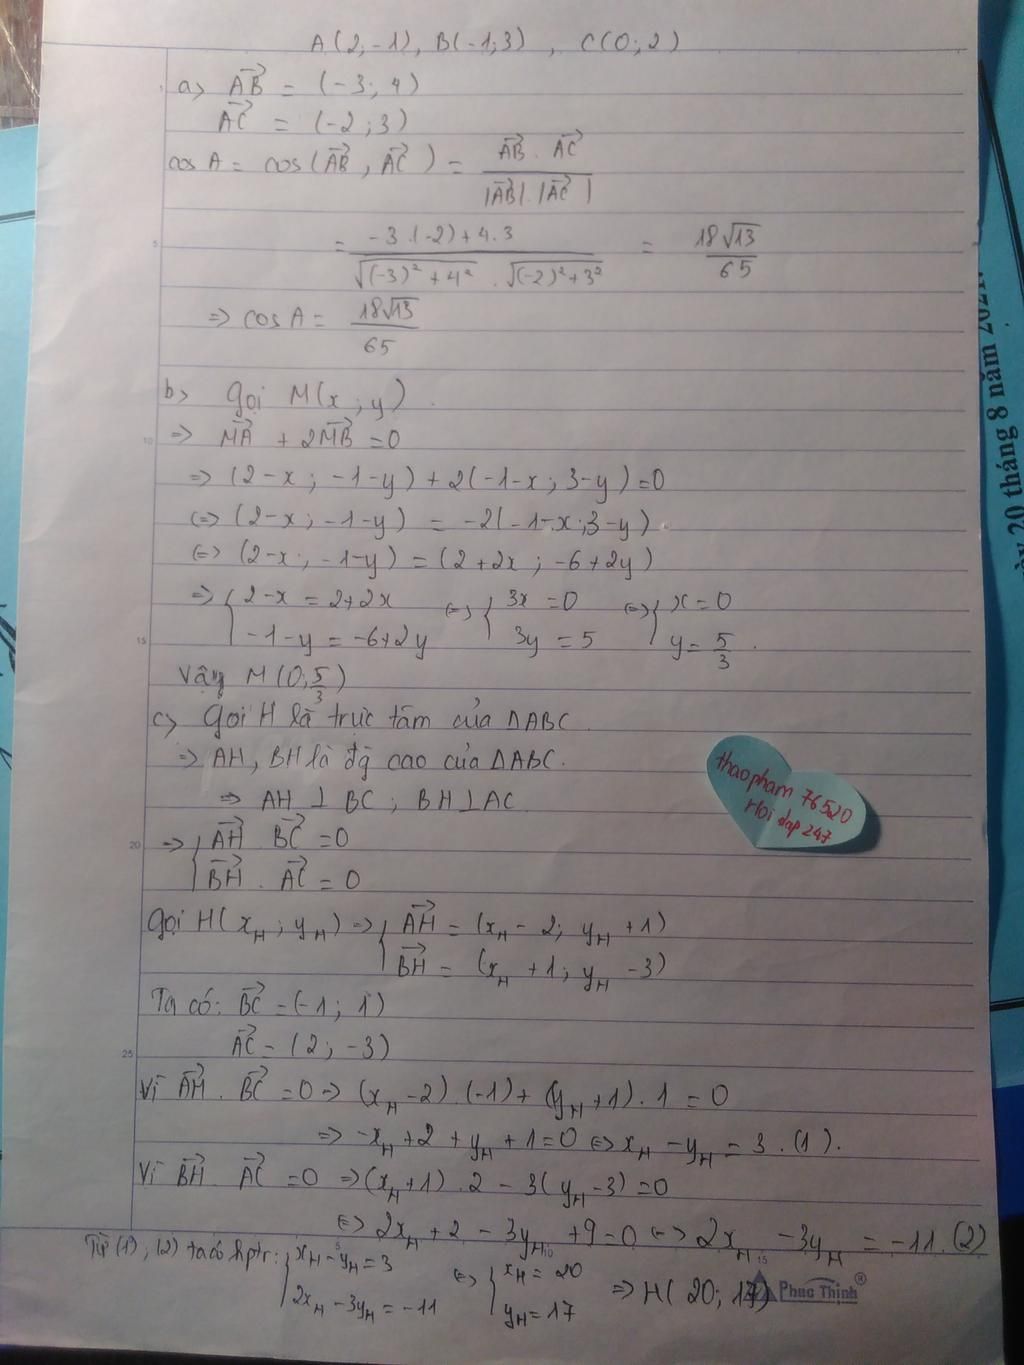 A(2;-1), B(-1;3) , C(0;2)
a> AB→ = (-3; 4)
AC→ = (-2;3)
cos A = cos(AB→, AC→) = AB→ . AC→ / |AB→| . |AC→|
= -3.(-2)+4.3 / √(-3)²+4² . √(-2)²+3² = 18√13 / 65
=> cos A = 18√13 / 65
b> Gọi M(x;y).
=> MA→ + 2MB→ = 0
=> (2-x; -1-y) + 2(-1-x; 3-y) = 0
<=> (2-x; -1-y) = -2(-1-x;3-y)
<=> (2-x; -1-y) = (2+2x; -6+2y)
=> { 2-x = 2+2x <=> { 3x = 0 <=> { x = 0
-1-y = -6+2y 3y = 5 y = 5/3 .
Vậy M(0;5/3)
c> Gọi H là trực tâm của ΔABC.
=> AH, BH là đg cao của ΔABC.
=> AH ⊥ BC ; BH ⊥ AC
=> { AH→ BC→ = 0
BH→ . AC→ = 0
Gọi H(x_H; y_H) => { AH→ = (x_H - 2; y_H + 1)
BH→ = (x_H + 1; y_H - 3)
Ta có: BC→ = (-1; 1)
AC→ = (2; -3)
Vì AH→ . BC→ = 0 => (x_H - 2) . (-1) + (y_H + 1) . 1 = 0
=> -x_H + 2 + y_H + 1 = 0 <=> x_H - y_H = 3 . (1).
Vì BH→ AC→ = 0 => (x_H + 1) . 2 - 3(y_H - 3) = 0
<=> 2x_H + 2 - 3y_H + 9 = 0 <=> 2x_H - 3y_H = -11. (2)
Từ (1), (2) ta có hptr: { x_H - y_H = 3 <=> { x_H = 20 => H(20; 17)
2x_H - 3y_H = -11 y_H = 17
thaopham 76520
Hoi dap 247
Phúc Thịnh®
ày 20 tháng 8 năm 2021.
5
10
15
20
25
5
10
15